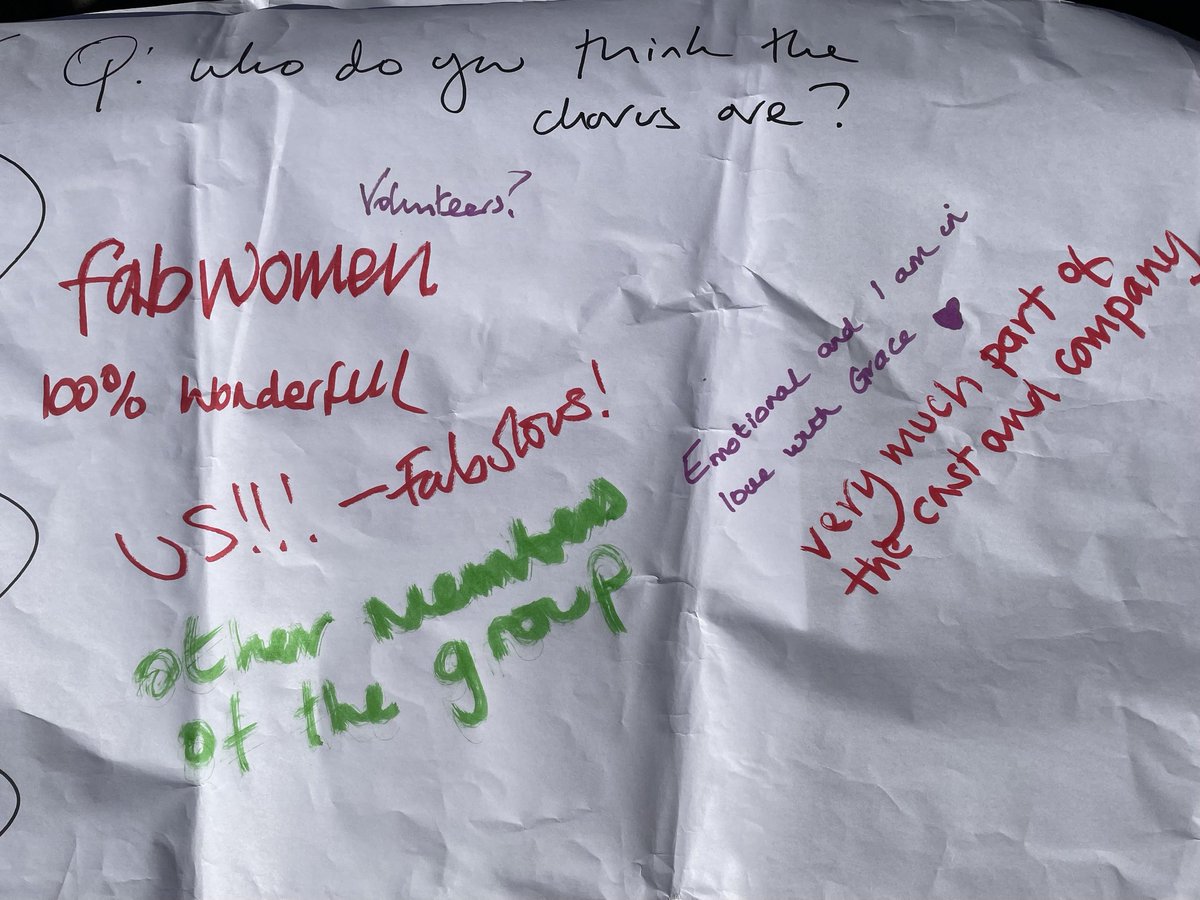 Q: who do you think the
chorus are?
Volunteers?
fab women
100% wonderful
US!!! - Fabulous!
other members
of the group
Emotional and I am in
love with Grace ♥
very much part of
the cast and company